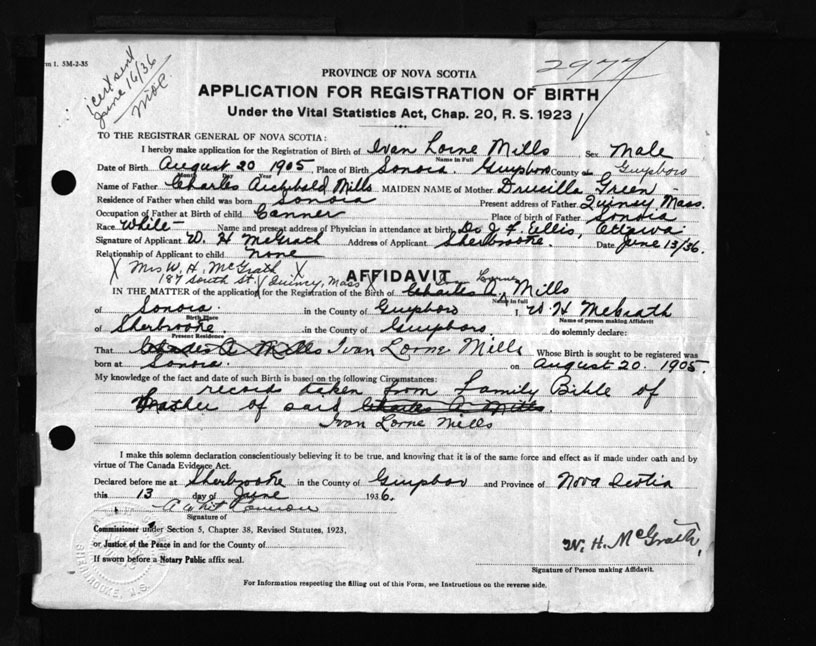 rm 1. 5M-2-35
cert sent
June 16/36
2977
PROVINCE OF NOVA SCOTIA
APPLICATION FOR REGISTRATION OF BIRTH
Under the Vital Statistics Act, Chap. 20, R. S. 1923
TO THE REGISTRAR GENERAL OF NOVA SCOTIA:
I hereby make application for the Registration of Birth of Ivan Lorne Mills Sex Male
Name in Full
Date of Birth August 20 1905, Place of Birth Sonora. Guysboro County Guysboro
Month Day Year
Name of Father Charles Archibald Mills MAIDEN NAME of Mother Druscilla Green
Residence of Father when child was born Sonora Present address of Father Quinsy, Mass.
Occupation of Father at Birth of child Canner Place of birth of Father Sonora
Race White Name and present address of Physician in attendance at birth Dr J. F. Ellis, Ottawa
Signature of Applicant W. H McGrath Address of Applicant Sherbrooke. Date June 13/36.
Relationship of Applicant to child None
X Mrs W. H. McGrath X
187 South St. Quincy, Mass X
AFFIDAVIT
Lorne
IN THE MATTER of the application for the Registration of the Birth of Charles A. Mills
Name in full
of Sonora. in the County of Guysboro I, W H McGrath
Birth Place Name of person making Affidavit
of Sherbrooke. in the County of Guysboro do solemnly declare:
Present Residence
That Charles A Mills Ivan Lorne Mills Whose Birth is sought to be registered was
born at Sonora. on August 20. 1905.
My knowledge of the fact and date of such Birth is based on the following Circumstances:
record taken from Family Bible of
Father of said Charles A. Mills.
Ivan Lorne Mills
I make this solemn declaration conscientiously believing it to be true, and knowing that it is of the same force and effect as if made under oath and by
virtue of The Canada Evidence Act.
Declared before me at Sherbrooke in the County of Guysboro and Province of Nova Scotia
this 13 day of June 1936.
Signature of
Commissioner under Section 5, Chapter 38, Revised Statutes, 1923,
or Justice of the Peace in and for the County of
If sworn before a Notary Public affix seal.
W. H. McGrath,
Signature of Person making Affidavit.
For Information respecting the filling out of this Form, see Instructions on the reverse side.
SHERBROOKE, N.S.